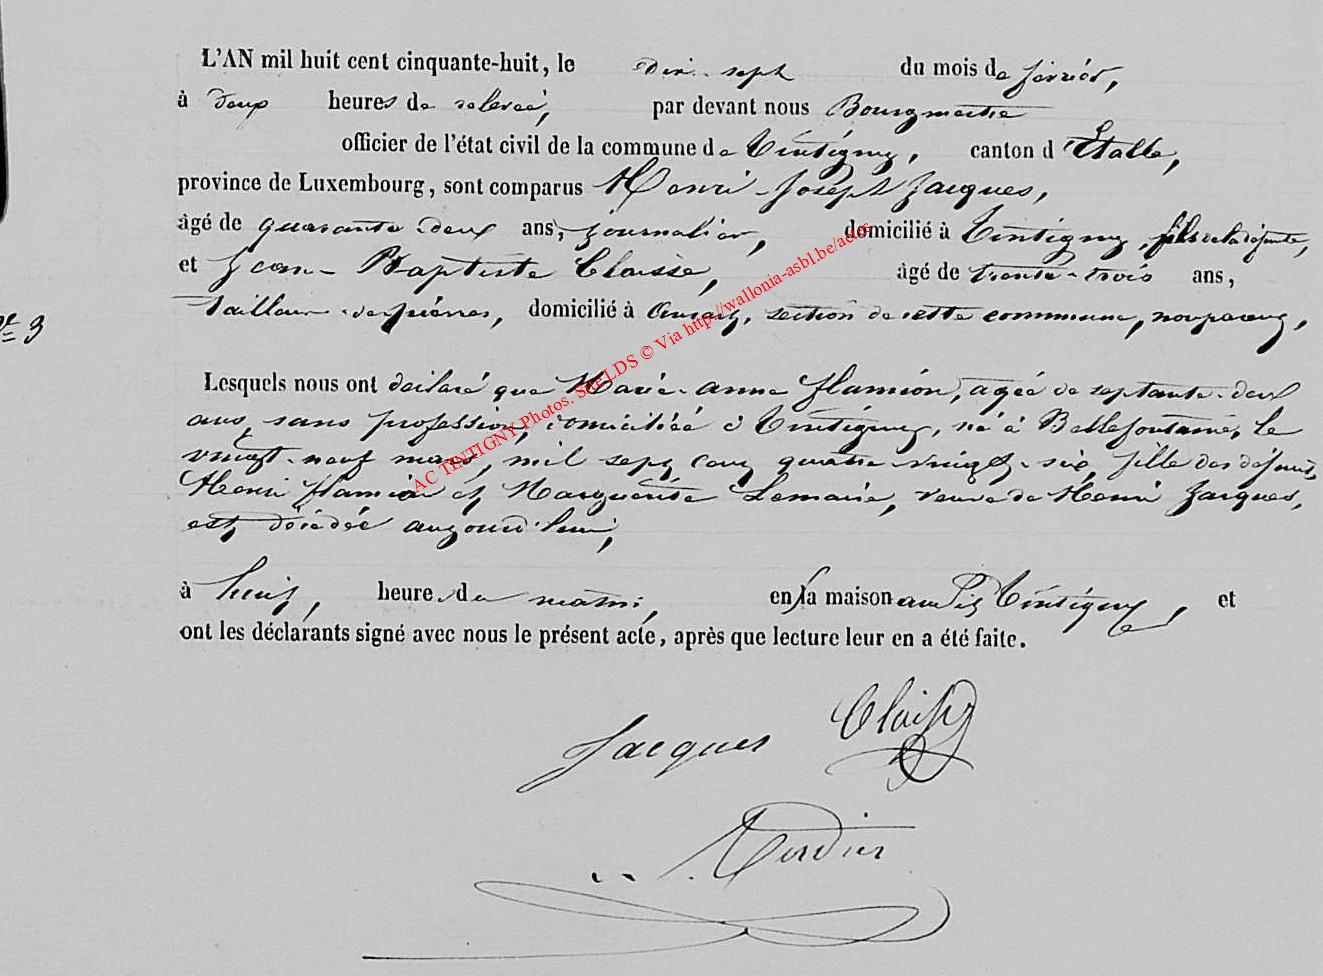 L'AN mil huit cent cinquante-huit, le dix-sept du mois de février,
à deux heures de relevée, par devant nous Bourgmestre
officier de l'état civil de la commune de Tintigny, canton d'Étalle,
province de Luxembourg, sont comparus Henri-Joseph Jacques,
âgé de quarante-deux ans, journalier, domicilié à Tintigny, fils de la défunte,
et Jean-Baptiste Claisse, âgé de trente-trois ans,
tailleur de pierres, domicilié à Ansart, section de cette commune, non parent,
N° 3
Lesquels nous ont déclaré que Marie-Anne Flamion, agée de septante-deux
ans, sans profession, domiciliée à Tintigny, né à Bellefontaine, le
vingt-neuf mars, mil sept cent quatre-vingt-six, fille des défunts
Henri Flamion et Marguerite Lemaire, veuve de Henri Jacques,
est décédée aujourd'hui,
à huit heure du matin, en sa maison audit Tintigny, et
ont les déclarants signé avec nous le présent acte, après que lecture leur en a été faite.
Jacques Claisse
AC TINTIGNY Photos. Site LDS © Via http://wallonia-asbl.be/actes